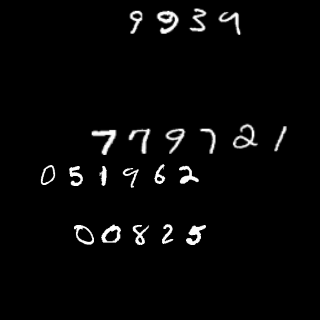 9939
779721
051962
00825